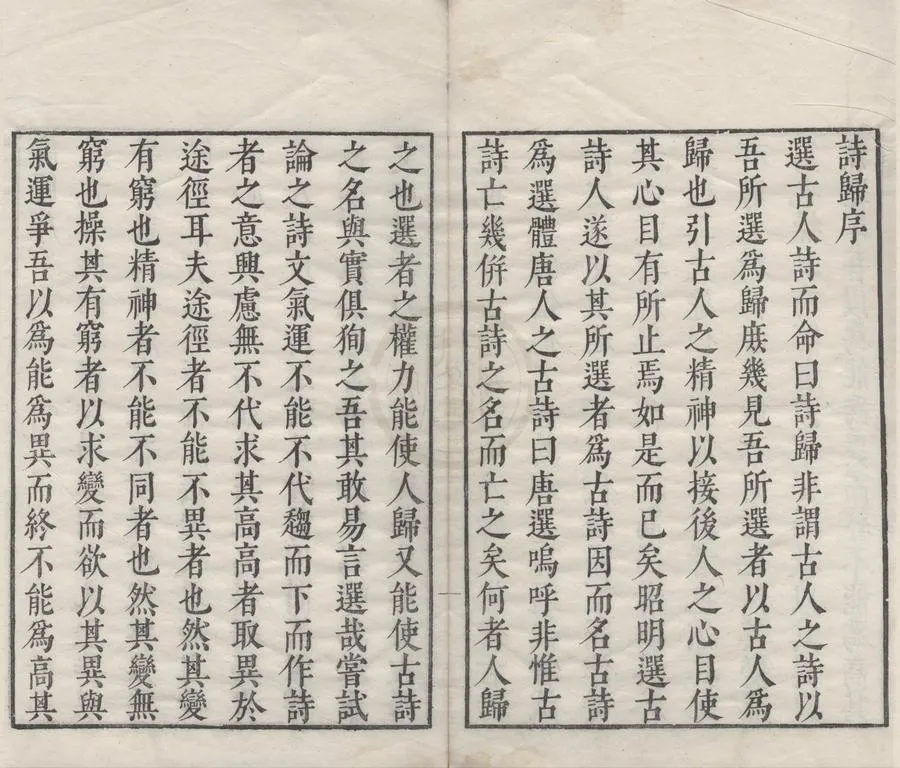 詩歸序
選古人詩而命曰詩歸非謂古人之詩以
吾所選爲歸庻幾見吾所選者以古人爲
歸也引古人之精神以接後人之心目使
其心目有所止焉如是而已矣昭明選古
詩人遂以其所選者爲古詩因而名古詩
爲選體唐人之古詩曰唐選嗚呼非惟古
詩亡幾倂古詩之名而亡之矣何者人歸
之也選者之權力能使人歸又能使古詩
之名與實俱狥之吾其敢易言選哉嘗試
論之詩文氣運不能不代趨而下而作詩
者之意興慮無不代求其高高者取異於
途徑耳夫途徑者不能不異者也然其變
有窮也精神者不能不同者也然其變無
窮也操其有窮者以求變而欲以其異與
氣運爭吾以爲能爲異而終不能爲高其